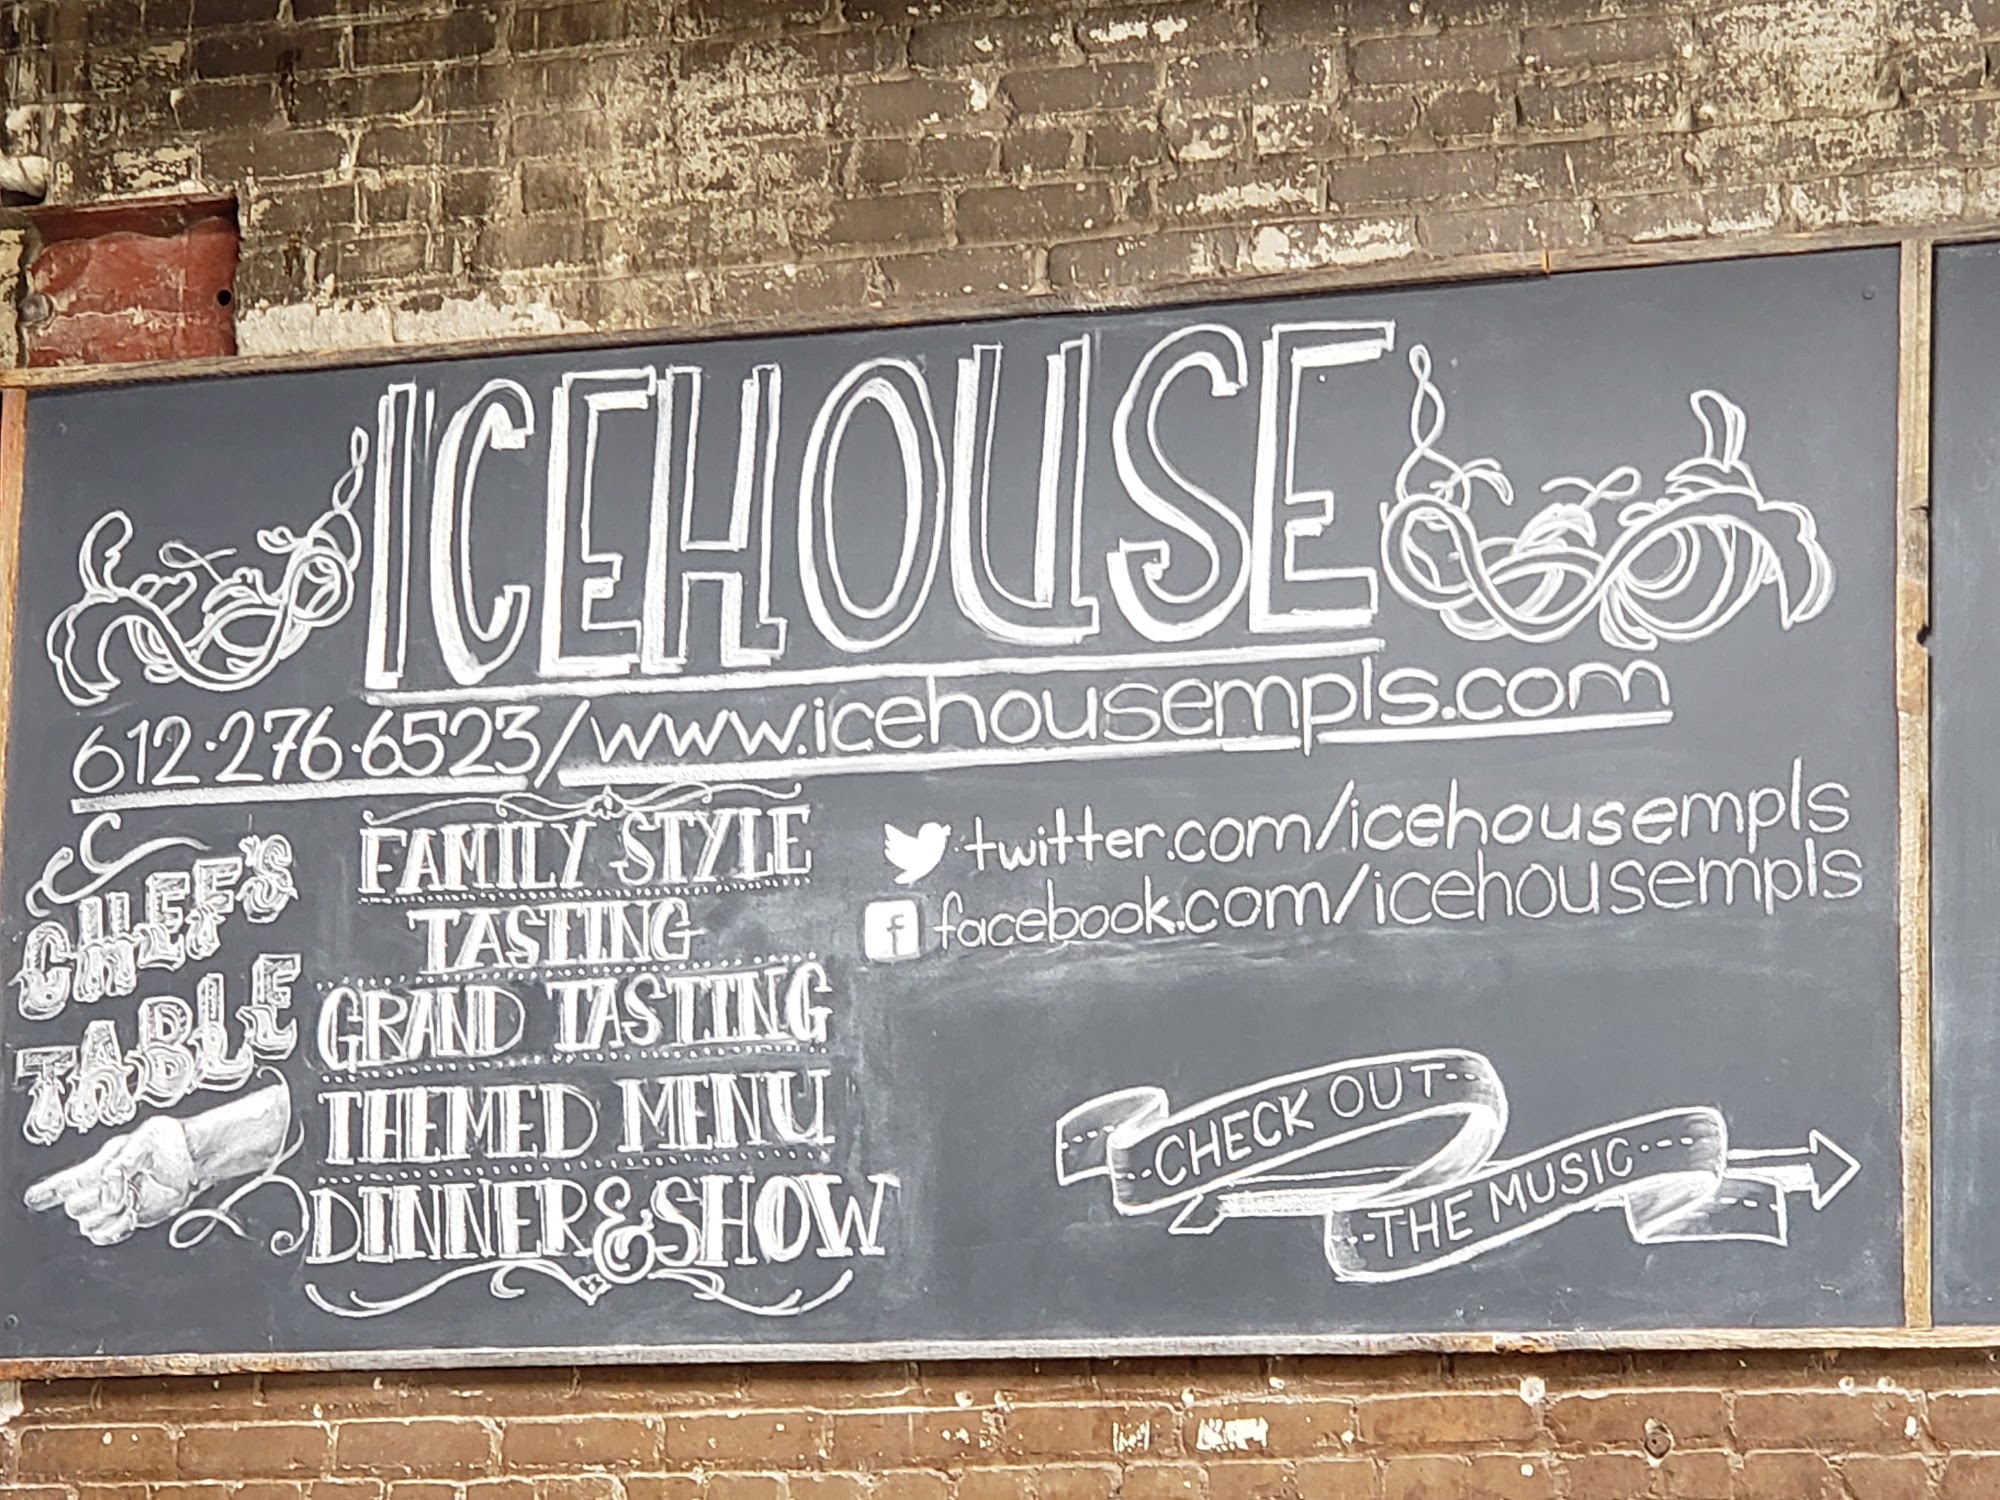 ICEHOUSE
612.276.6523/www.icehousempls.com
CHEF'S
TABLE
FAMILY STYLE
TASTING
GRAND TASTING
THEMED MENU
DINNER & SHOW
twitter.com/icehousempls
f facebook.com/icehousempls
CHECK OUT
THE MUSIC